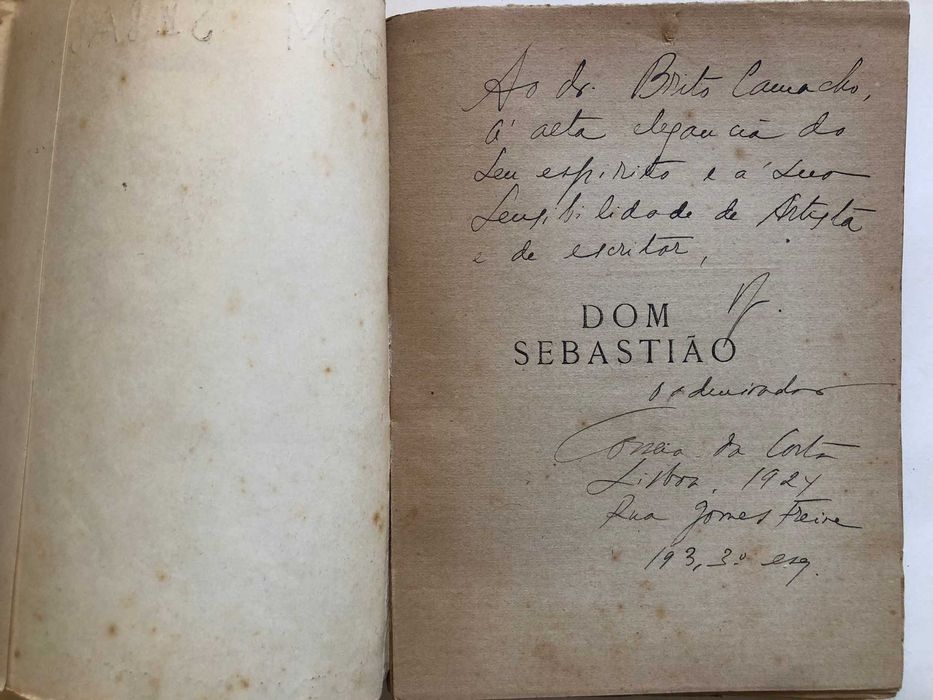 Ao dr. Brito Camacho,
á alta elegancia do
seu espirito e á sua
sensibilidade de Artista
e de escritor,
DOM
SEBASTIÃO
o admirador
Correia da Costa
Lisboa, 1924
Rua Gomes Freire
193, 3.º esq.